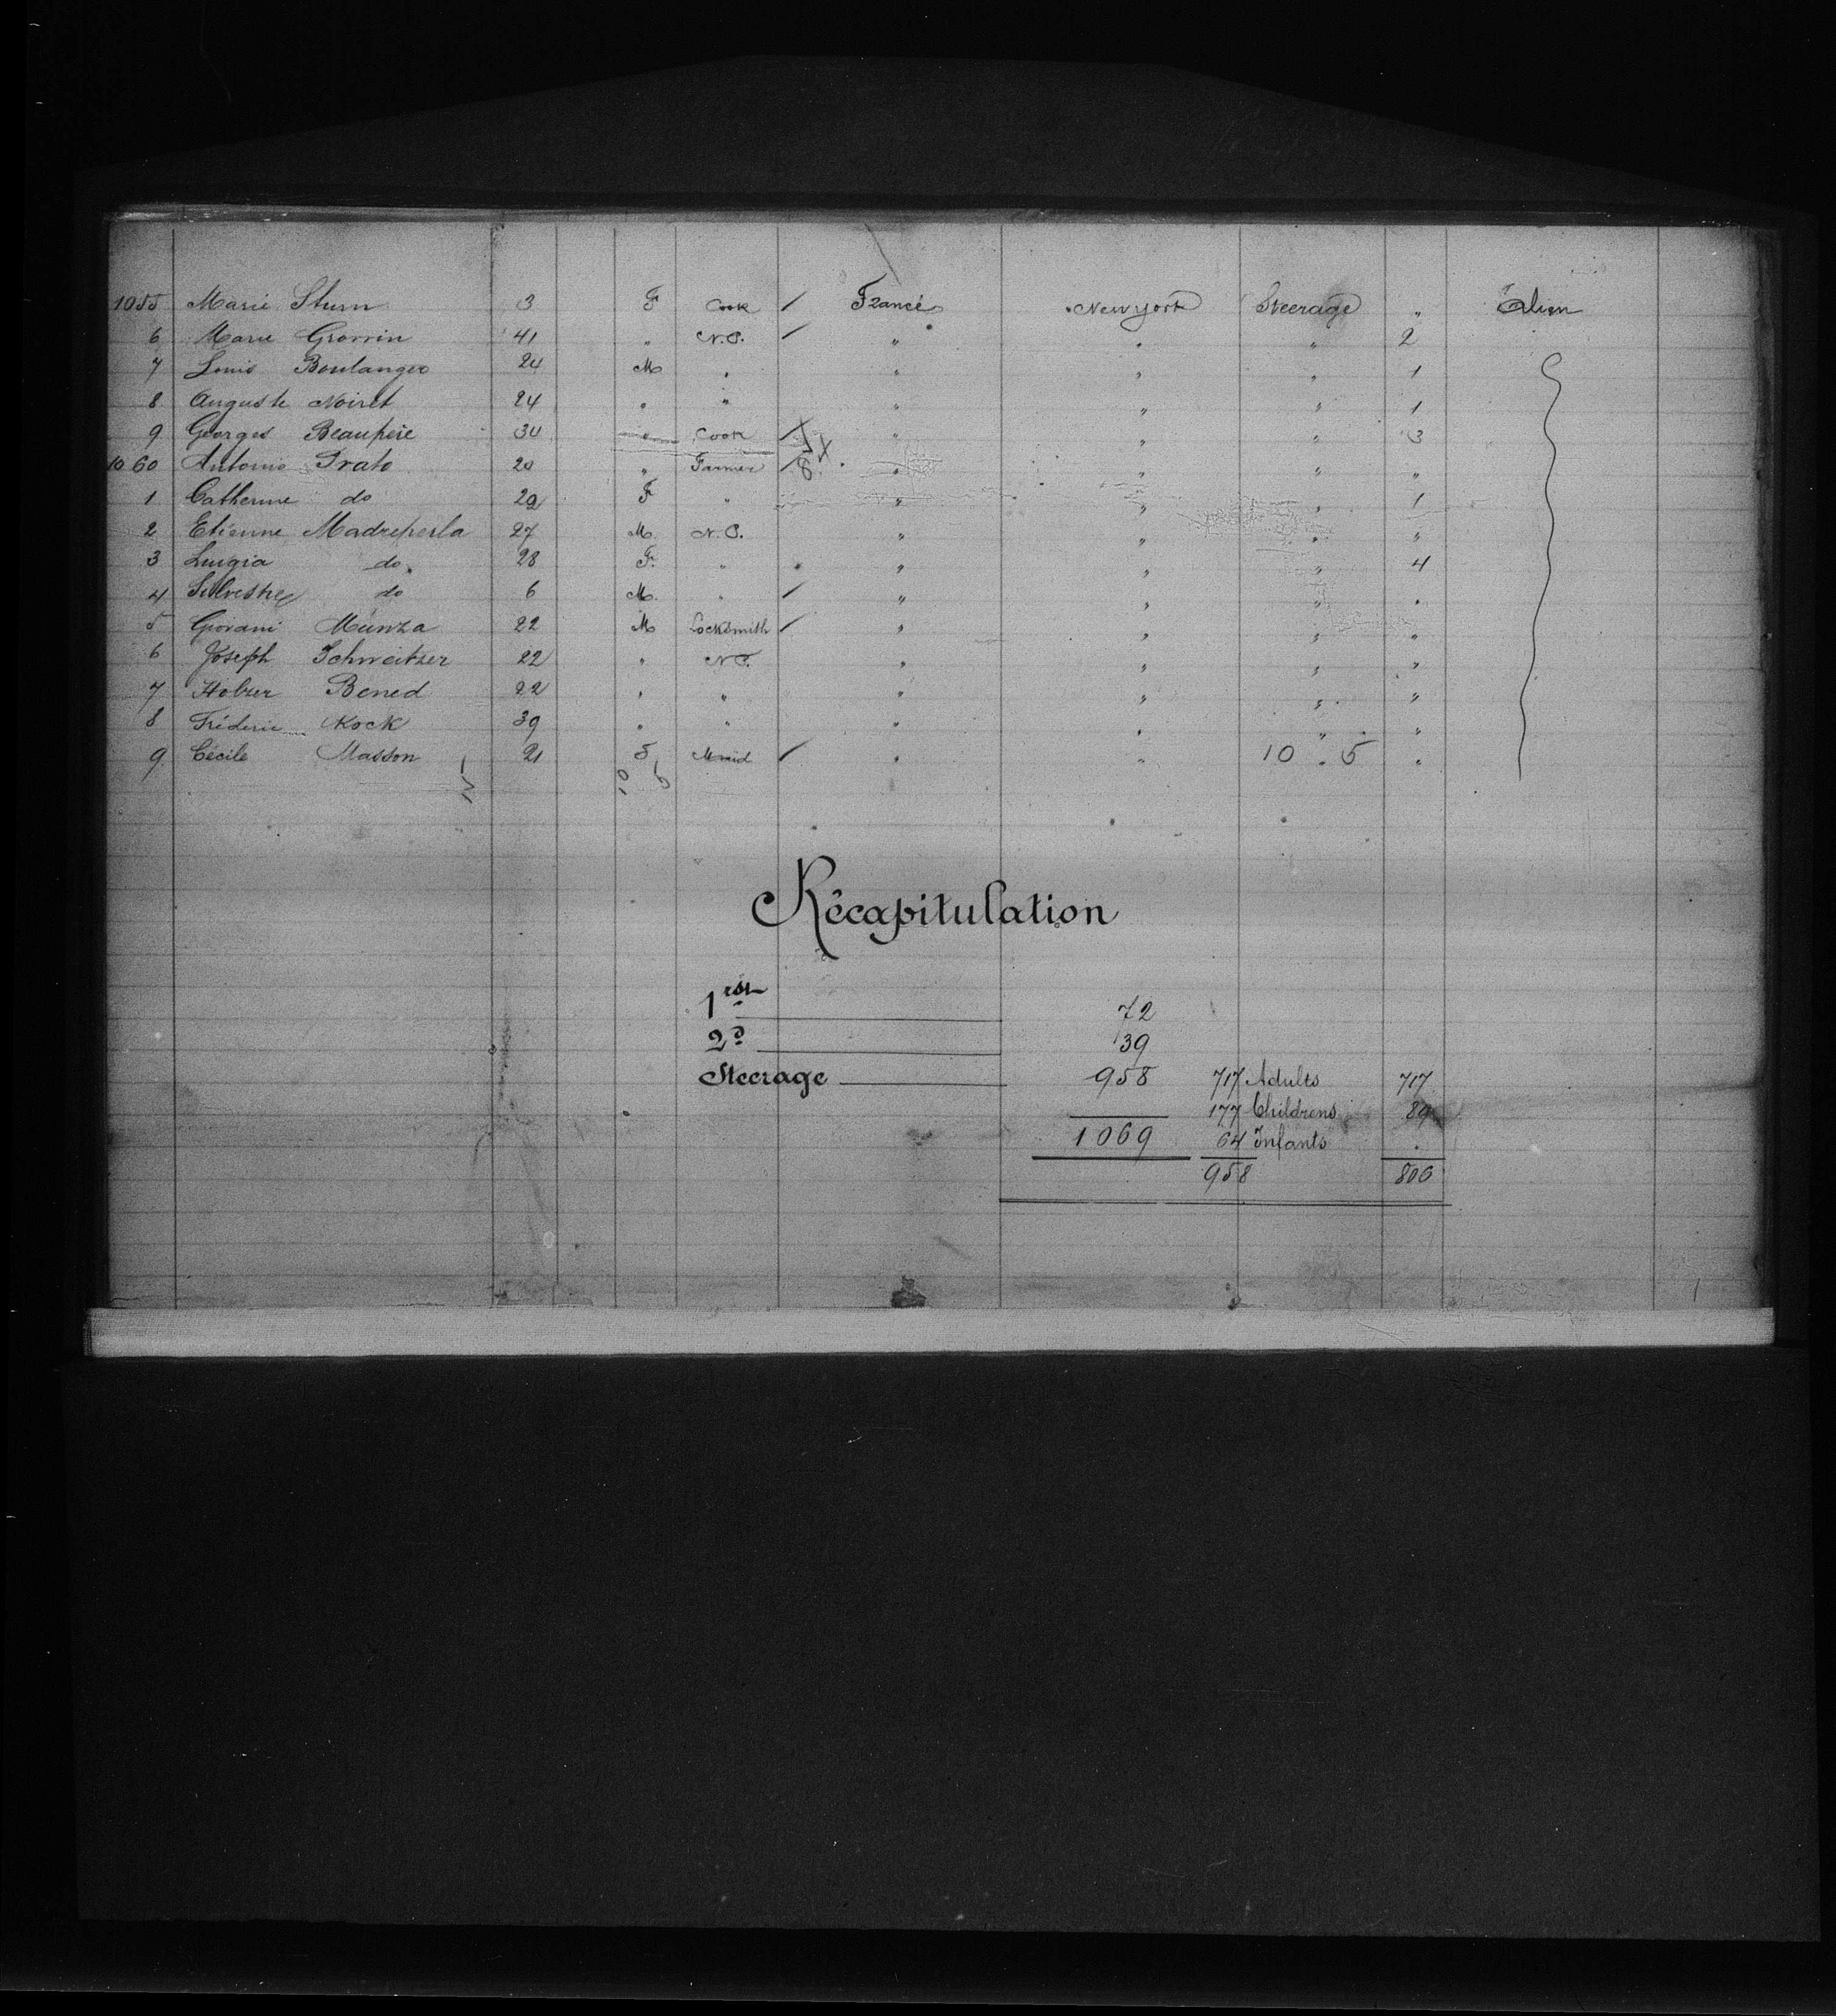 1055 Marie Sturn 3 F Cook / France New york Steerage " Alien
6 Marie Gronin 41 " N.O. / " " " 2
7 Louis Boulanger 24 M " " " " 1
8 Auguste Noiret 24 " " " " " 1
9 Georges Beaupère 30 " Cook " " " 3
1060 Antonio Prato 20 " Farmer " " " "
1 Catherine do 29 F " " " " 1
2 Etienne Madreperla 27 M. N.O. " " " "
3 Luigia do 28 F. " " " " 4
4 Silvestre do 6 M. " / " " " "
5 Giovani Munza 22 M Locksmith / " " " "
6 Joseph Schweitzer 22 " N.O. " " " "
7 Bened 22 " " " " " "
8 Fréderic Kock 39 " " " " " "
9 Cécile Masson 21 Maid / " " 10 . 5 "
15 10 5
Récapitulation
1rst 72
2d 39
Steerage 958 717 Adults 717
177 Childrens 89
1069 64 Infants .
958 806